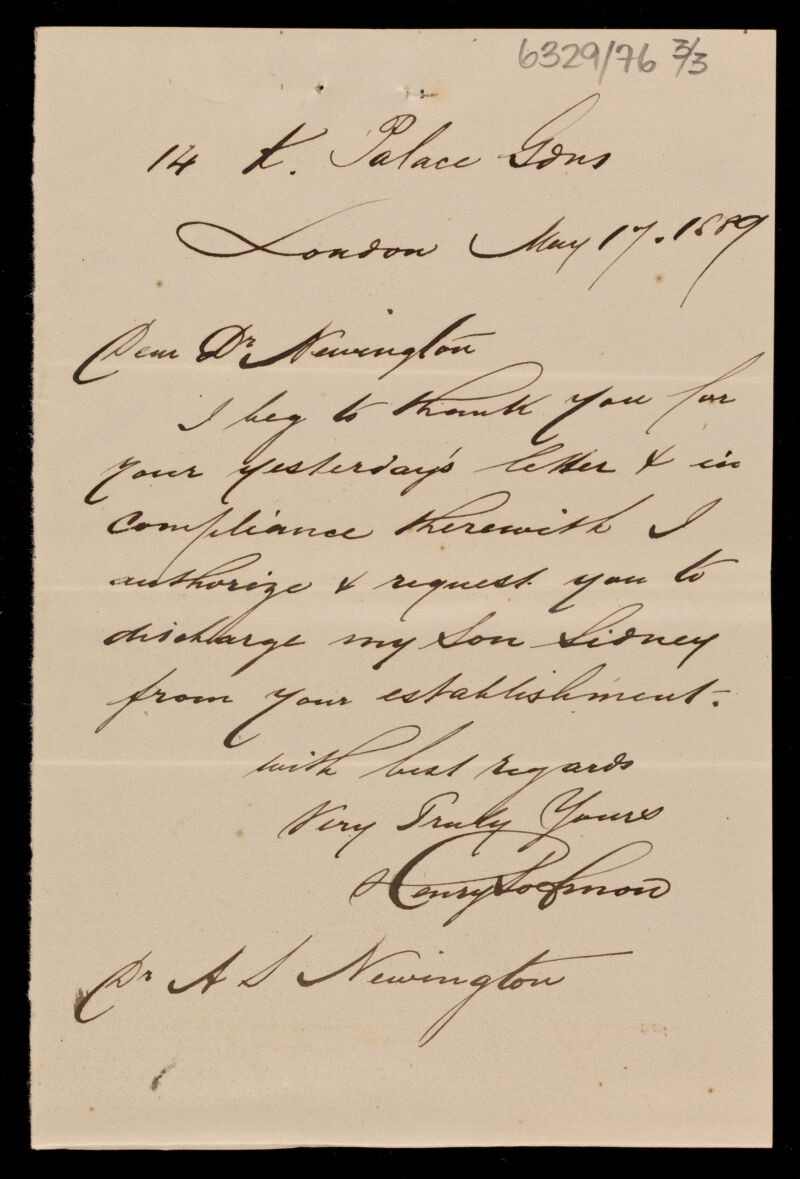 6329/76 3/3
14 K. Palace Gdns
London May 17. 1889
Dear Dr Newington
I beg to thank you for
your yesterday's letter & in
compliance therewith I
authorize & request you to
discharge my Son Sidney
from your establishment.
with best regards
Very Truly Yours
Henry Solomon
Dr A S Newington